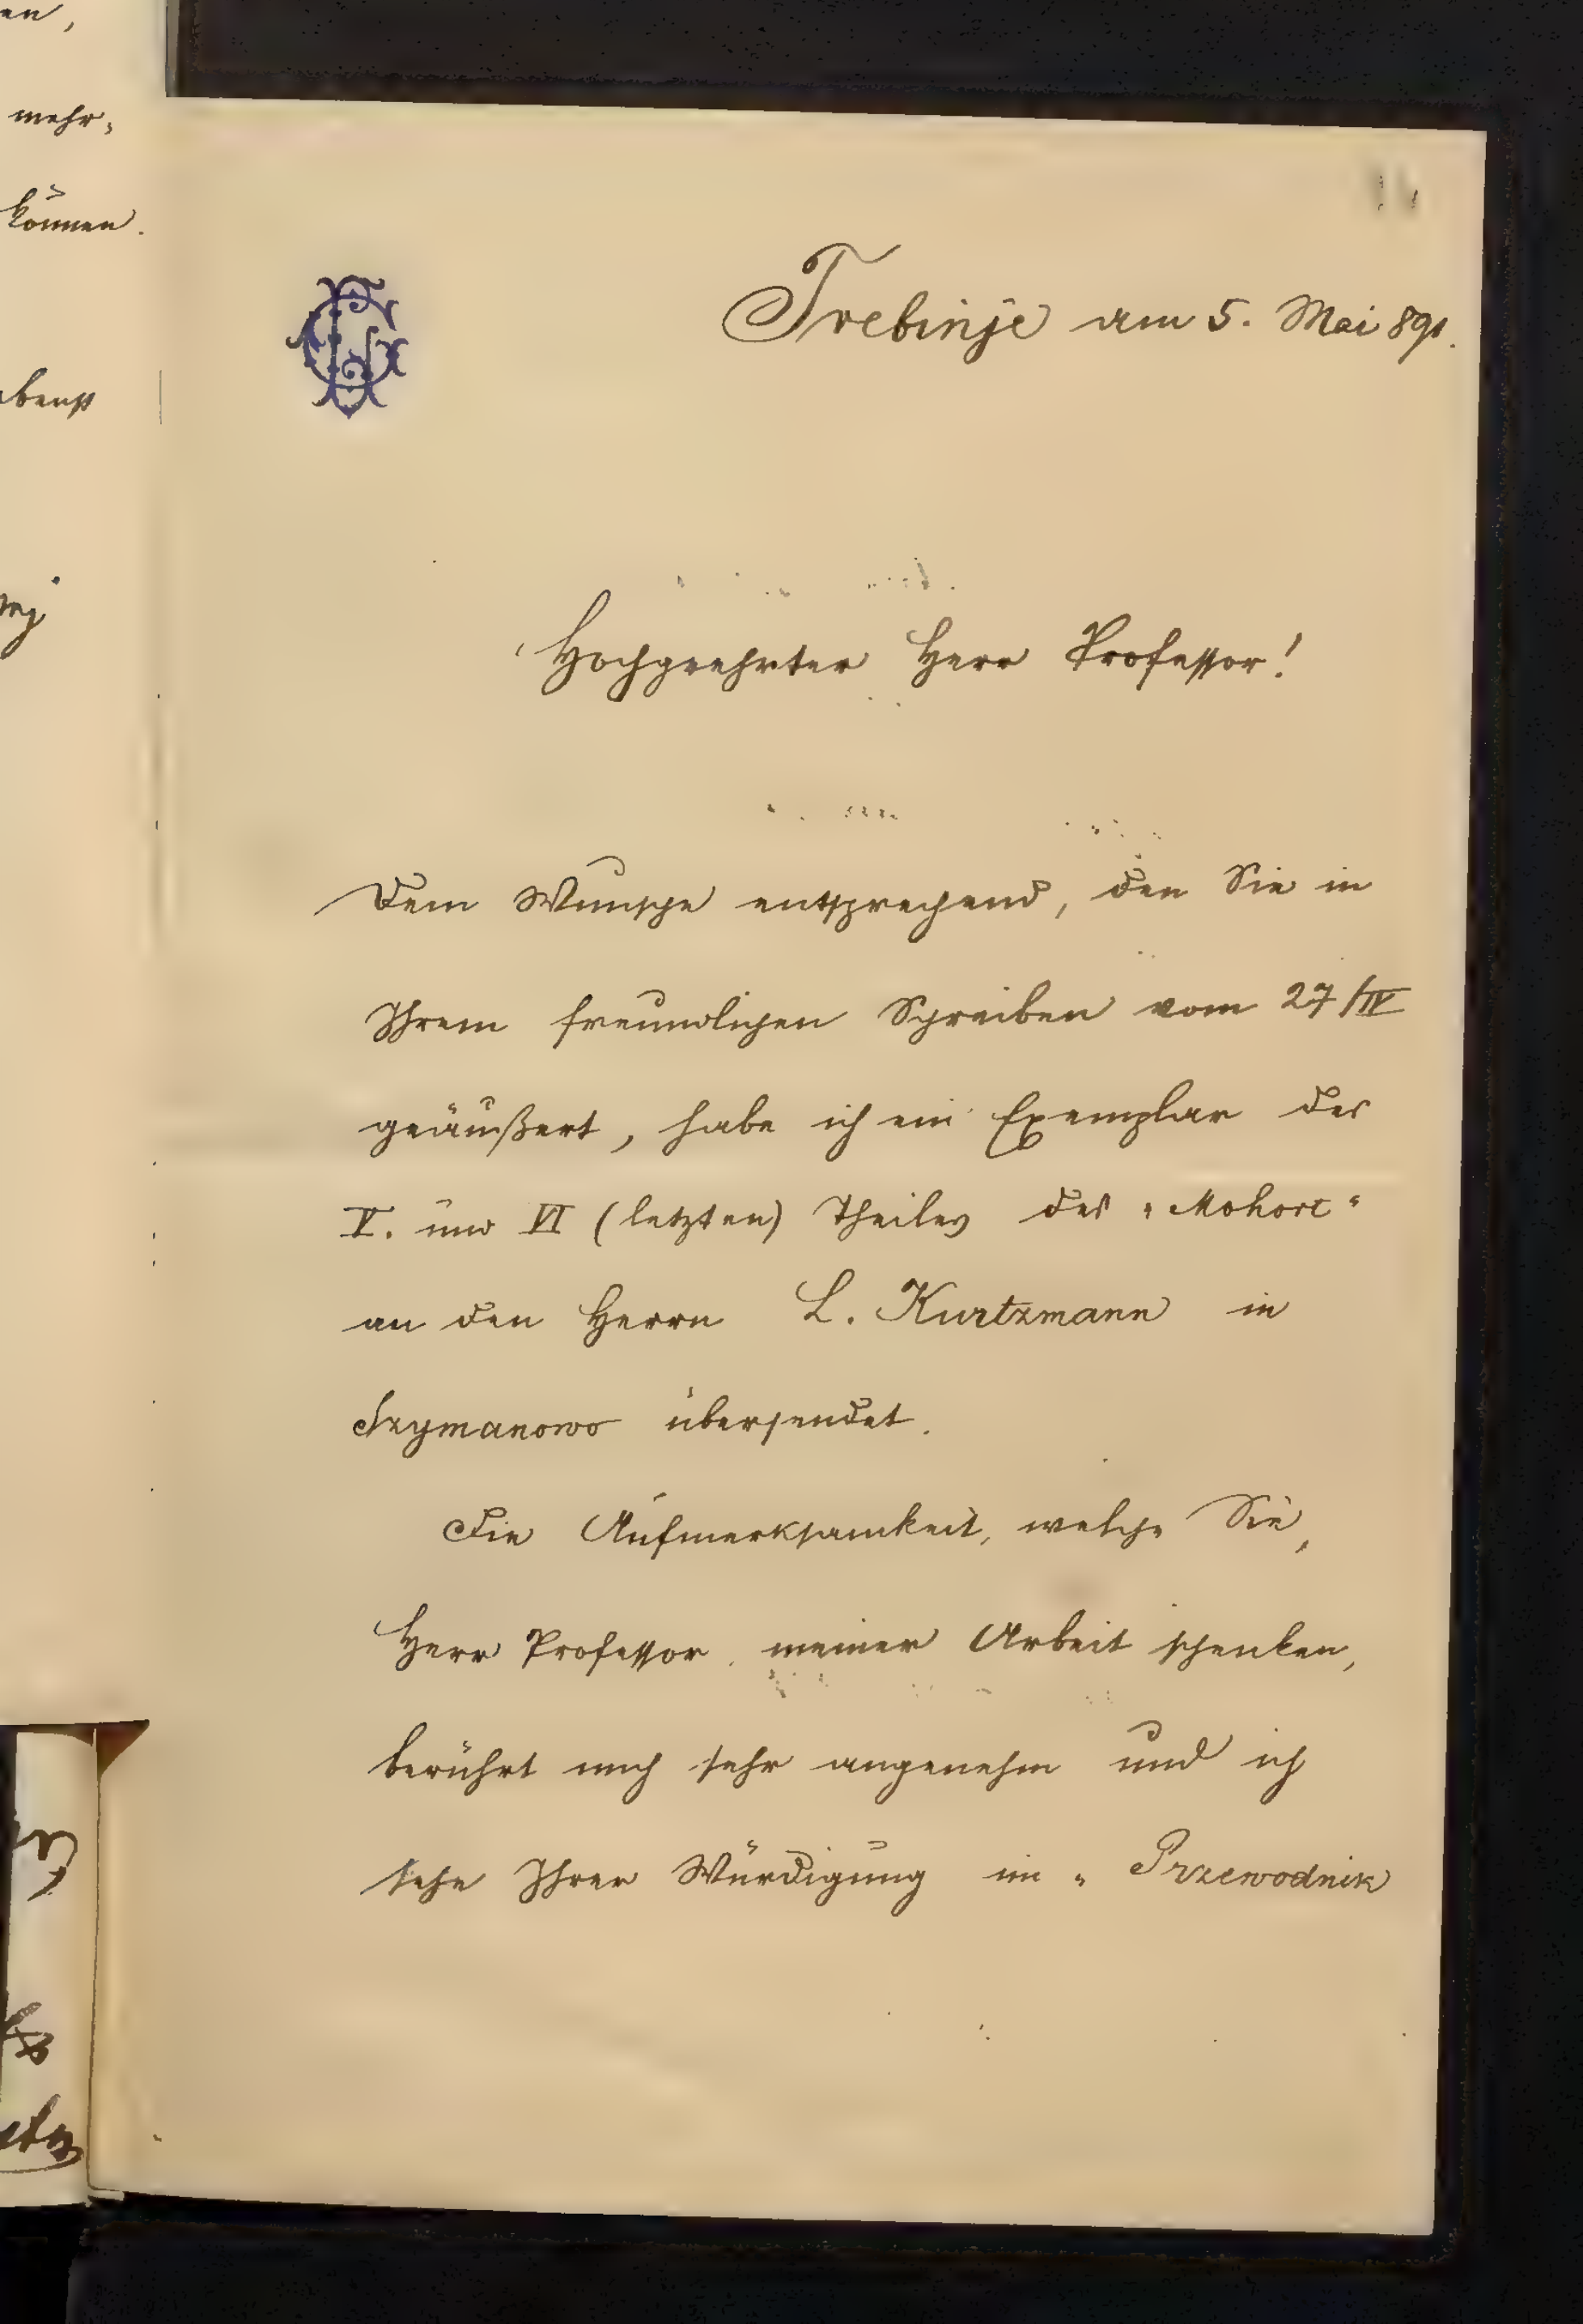 mehr,
können.
Trebinje am 5. Mai 891.
Hochgeehrter Herr Professor!
Dem Wunsche entsprechend, den Sie in
Ihrem freundlichen Schreiben vom 27/IV
geäußert, habe ich ein Exemplar des
V. und VI (letzten) Theiles des "Mohort"
an den Herrn L. Kurtzmann in
Szymanowo übersendet.
Die Aufmerksamkeit, welche Sie,
Herr Professor, meiner Arbeit schenken,
berührt mich sehr angenehm und ich
sehe Ihrer Würdigung im "Przewodnik